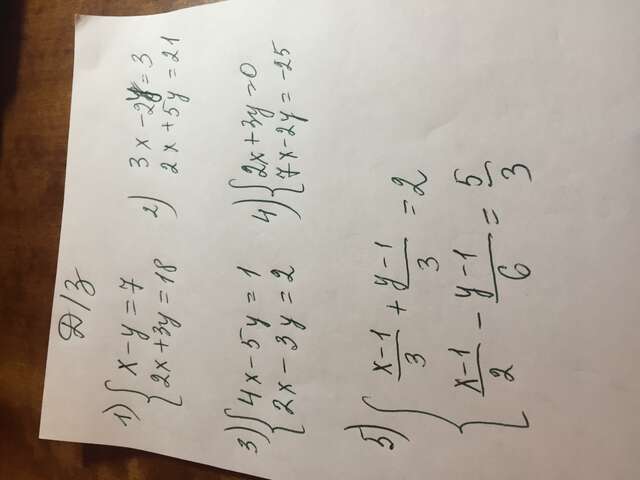 Д/З
1) { x - y = 7
2x + 3y = 18
2) 3x - 2y = 3
2x + 5y = 21
3) { 4x - 5y = 1
2x - 3y = 2
4) { 2x + 3y = 0
7x - 2y = -25
5) { (x-1)/3 + (y-1)/3 = 2
(x-1)/2 - (y-1)/6 = 5/3